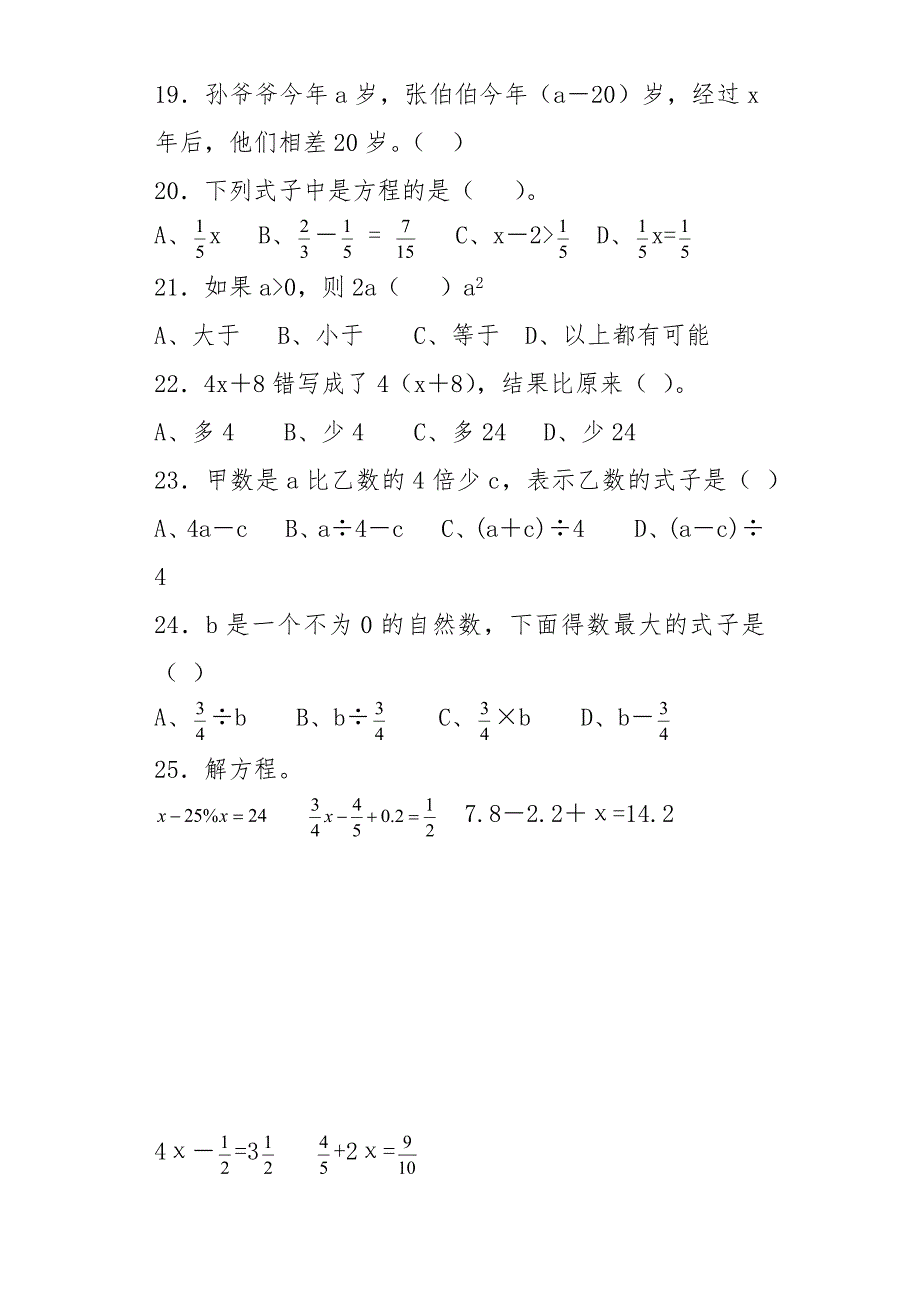 19．孙爷爷今年a岁，张伯伯今年（a－20）岁，经过x
年后，他们相差20岁。（  ）
20．下列式子中是方程的是（   ）。
A、1/5x   B、2/3－1/5 = 7/15   C、x－2>1/5  D、1/5x=1/5
21．如果a>0，则2a（   ）a²
A、大于   B、小于    C、等于  D、以上都有可能
22．4x＋8错写成了4（x＋8），结果比原来（  ）。
A、多4    B、少4    C、多24   D、少24
23．甲数是a比乙数的4倍少c，表示乙数的式子是（  ）
A、4a－c   B、a÷4－c   C、(a＋c)÷4    D、(a－c)÷
4
24．b是一个不为0的自然数，下面得数最大的式子是
（  ）
A、3/4÷b    B、b÷3/4    C、3/4×b    D、b－3/4
25．解方程。
x－25%x＝24   3/4x－4/5＋0.2＝1/2  7.8－2.2＋ｘ=14.2
4ｘ－1/2=3 1/2   4/5+2ｘ=9/10